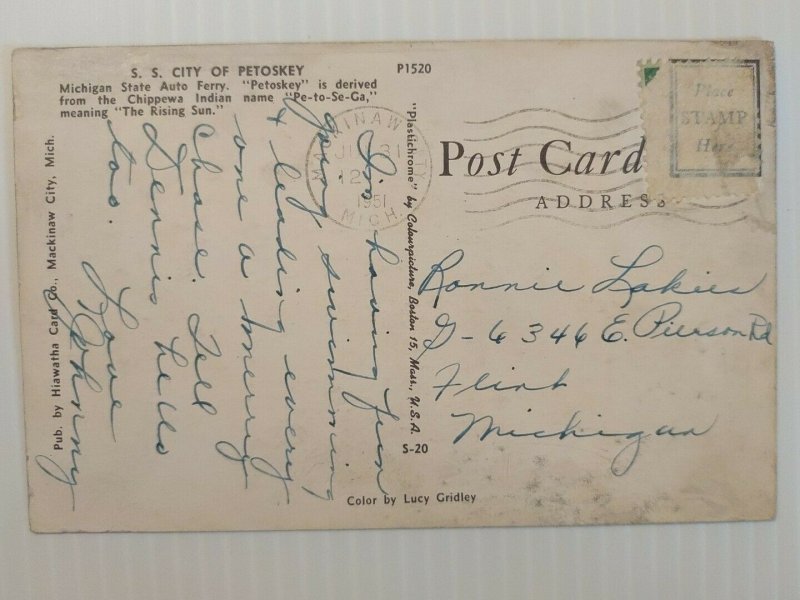 S. S. CITY OF PETOSKEY
Michigan State Auto Ferry. "Petoskey" is derived
from the Chippewa Indian name "Pe-to-Se-Ga,"
meaning "The Rising Sun."
P1520
Pub. by Hiawatha Card Co., Mackinaw City, Mich.
I'm having fun
going swimming
& leading every
one a merry
chase. Tell
Dennis hello
too.
Love
Johnny
MACKINAW CITY
31
1951
MICH.
"Plastichrome" by Colourpicture, Boston 15, Mass., U.S.A.
S-20
Color by Lucy Gridley
Post Card
ADDRESS
Place
STAMP
Here
Ronnie Lakies
G-6346 E. Pierson Rd
Flint
Michigan